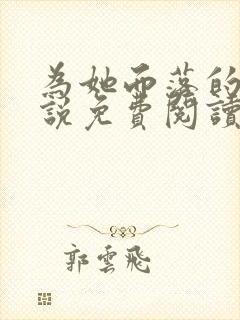 為她而落的
說免費閱讀
郭雲飛